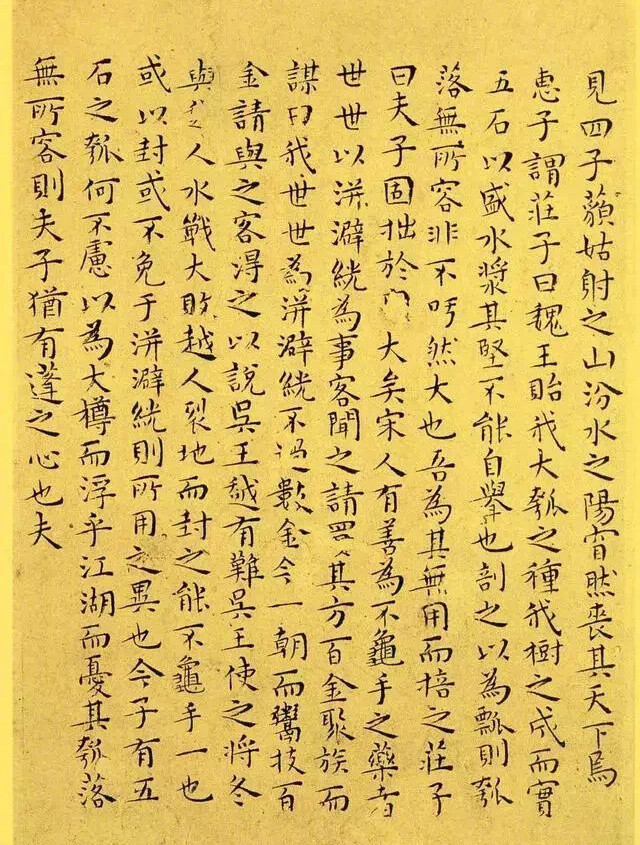 見四子藐姑射之山汾水之陽窅然喪其天下焉
惠子謂莊子曰魏王貽我大瓠之種我樹之成而實
五石以盛水漿其堅不能自舉也剖之以為瓢則瓠
落無所容非不呺然大也吾為其無用而掊之莊子
曰夫子固拙於大矣宋人有善為不龜手之藥者
世世以洴澼絖為事客聞之請買其方百金聚族而
謀曰我世世為洴澼絖不過數金今一朝而鬻技百
金請與之客得之以說吳王越有難吳王使之將冬
與越人水戰大敗越人裂地而封之能不龜手一也
或以封或不免于洴澼絖則所用之異也今子有五
石之瓠何不慮以為大樽而浮乎江湖而憂其瓠落
無所容則夫子猶有蓬之心也夫